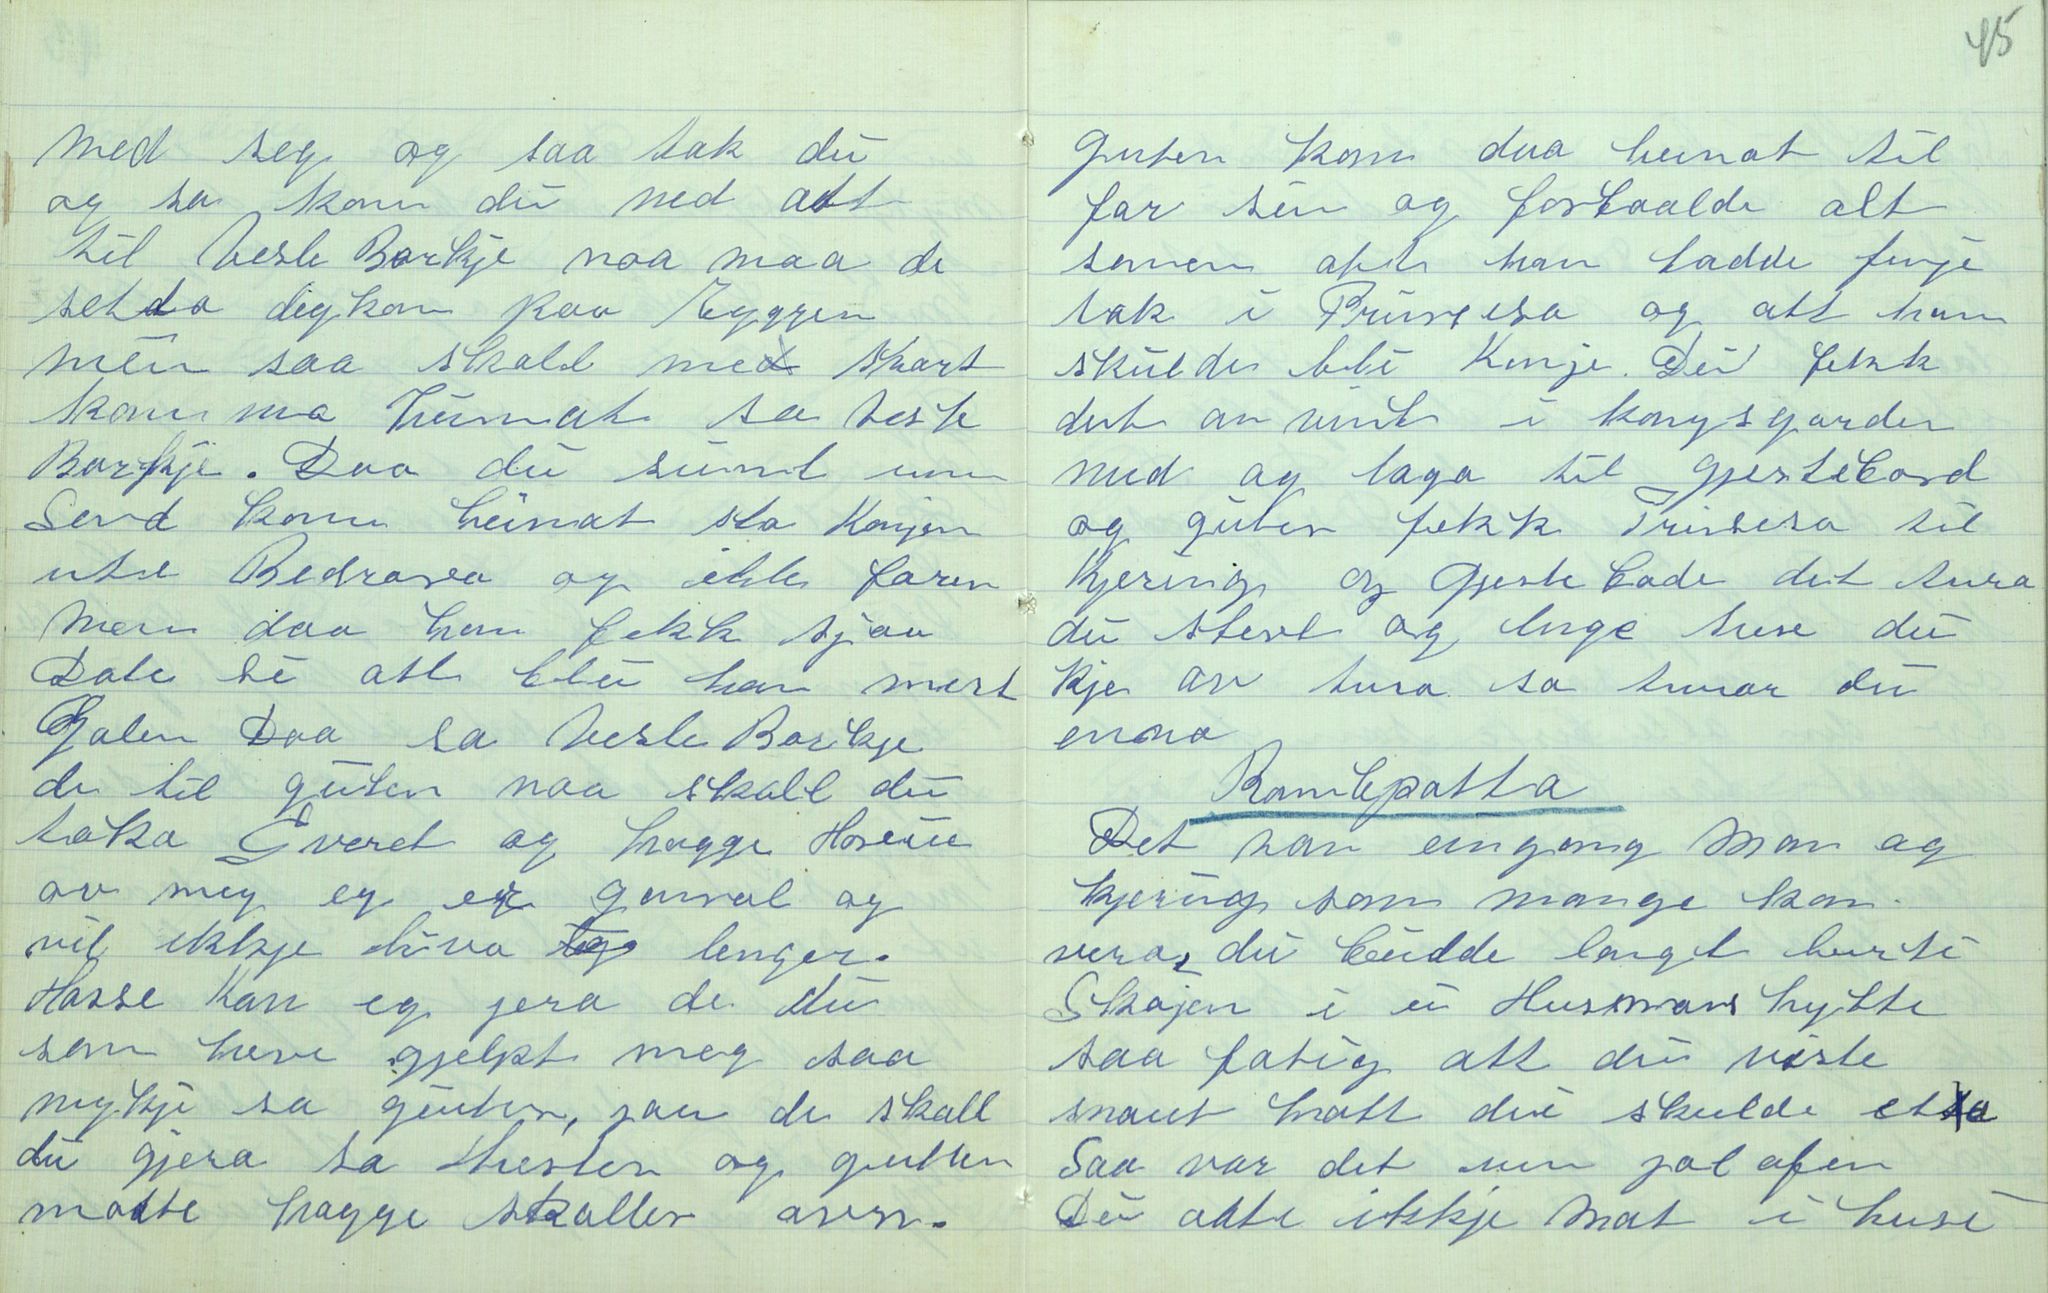 med seg og saa tok dù
og sa kom dù ned att
til Vesle Borkje naa maa de
setta digkan paa Ryggen
mèn saa skall me snart
komma heimat sa vesle
Borkje. Daa dù sùmt um
Send kom heimat sto Konjen
ute
og ikke faren
Men daa han fekk sjaa
Date si att bleù han mest
Galen Daa sa Vesle Borkje
de til gùten naa skall dù
taka Sveret og hogge Hovue
av meg eg er gamal og
vil ikkje liva lenger.
Hosse kan eg jera de dù
som heve gjelpt meg saa
mykji sa gùten, jau de skall
dù gjera sa Hesten og gutten
motte hogge skallen avvn.
45
Guten kom daa heimat til
far sin og fortaalde alt
samen atte han hadde finje
tak i Prinsesa og att han
skùlde bli Konje. Dei fekk
det anvint i kongsgarden
med og laga til gjestebord
og gùten fekk Prinsesa til
Kjering og Gjestebode det tura
dù stort og lenge have dù
kje av tura so turar dù
enno
Romlepotta
Det van eingong Man og
kjering som mange kan
vera, dù bùdde langt burti
Skojen i ei Husmans hytte
saa fatig att dei viste
snaut hott dei skulde eta
Saa var det um jolafen
Dei atte ikkje Mat i husi